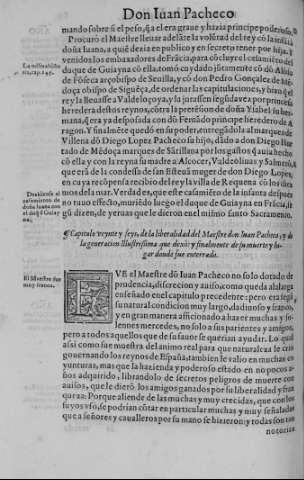 Don Iuan Pacheco
mando sobre si el peso, q̃ a el era graue y hazia principe poderoso,
Procuro el Maestre lleuar adelãte la volũtad del rey cõ la infãta
doña Iuana, a quiẽ dezia en publico y en secreto tener por hija. Y
venidos los embaxadores de Frãcia, para cõcluyr el casamiẽto del
duque de Guiayna cõ ella, tomo cõ cuydado jũtamẽte cõ dõ Alõso
de Fõseca arçobispo de Seuilla, y cõ don Pedro Gonçalez de
doça obispo de Sigueça, de ordenar las capitulaciones, y hizo q̃ el
rey la lleuasse a Valdeloçoya, y la jurassen
heredera destos reynos, cõtra la pretẽsion de doña Ysabel su her-
mana, q̃ era ya desposada con dõ Fernãdo principe heredero de A-
ragon. Y finalmẽte quedò en su poder, entregãdola al marques de
Villena dõ Diego Lopez Pacheco su hijo, dãdo a don Diego Hur-
tado de Mẽdoça marques de Sãtillana por los gastos q̃ auia hecho
cõ ella y con la reyna su madre a Alcocer, Valdeoliuas y Salmerõ,
que erã de la condessa de san Esteuã muger de don Diego Lopez,
en cuya recõpẽsa recibio del rey la villa de Requena cõ los
mos de la mar. Verdad es, que este casamiẽto de la infanta
no tuuo effecto, muriẽdo luego el duque de Guiayna en Frãcia,
gũ dizen, de yeruas que le dieron en el mismo santo Sacramento.
Capitulo veynte y seys, de la liberalidad del Maestre don Iuan Pacheco, y de
la generacion Illustrissima que dexò: y finalmente de su muerte y lu-
gar donde fue enterrado.
El Maestre fue
muy franco.
FVE el Maestre dõ Iuan Pacheco no solo dotado de
prudencia, discrecion y auiso, como queda a la larga
enseñado en el capitulo precedente: pero era
su natural condicion muy largo, dadiuoso y franco,
y en gran manera afficionado a hazer muchas y so-
lennes mercedes, no solo a sus parientes y amigos,
pero a todos aquellos que de su fauor se querian ayudar. Lo qual
assi como fue muestra del animo real para que naturaleza le crio
gouernando los reynos de España, tambien le valio en muchas
yunturas, mas que la hazienda y poderoso estado en no pocos
bos adquirido, librandolo de secretos peligros de muerte con
auisos, que le dierõ los amigos ganados por su liberalidad y fran-
queza: Porque aliende de las muchas y muy crecidas, que con los
suyos vso, se podrian cõtar en particular muchas y muy señaladas
que a señores y caualleros por su mano se hizieron: y todas son tan
notorias